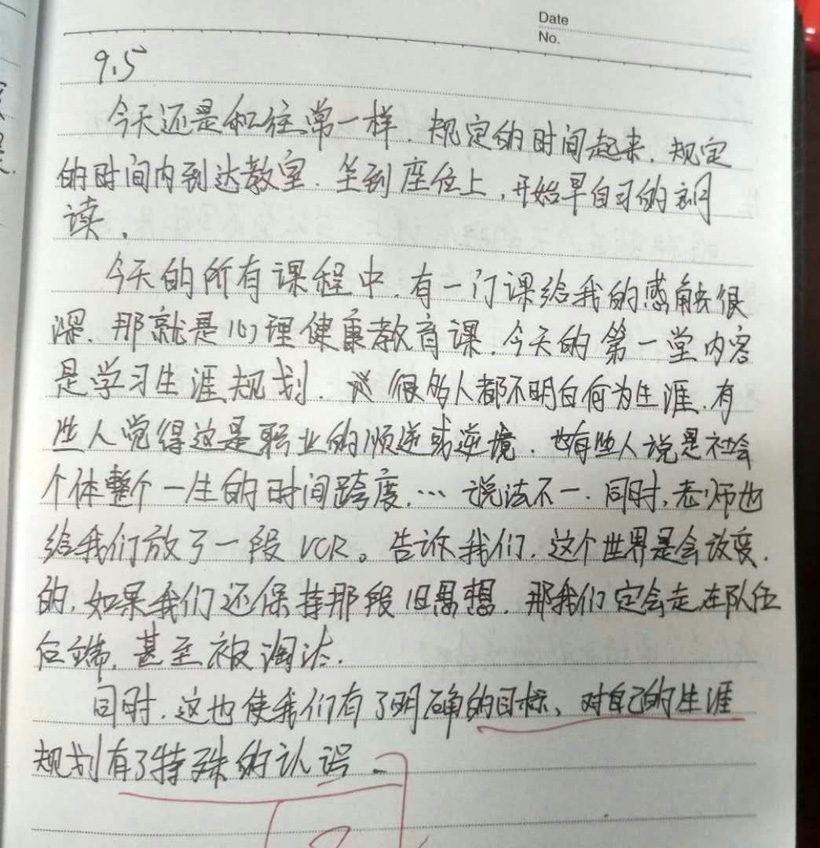 Date
No.
9.5
今天还是和往常一样，规定的时间起来，规定
的时间内到达教室，坐到座位上，开始早自习的朗
读。
今天的所有课程中，有一门课给我的感触很
深，那就是心理健康教育课，今天的第一堂内容
是学习生涯规划，很多人都不明白何为生涯，有
些人觉得这是职业的顺逆或逆境，也有些人说是社会
个体整个一生的时间跨度，…说法不一，同时，老师也
给我们放了一段VCR。告诉我们，这个世界是会改变
的，如果我们还保持那段旧思想，那我们定会走在队伍
后端，甚至被淘汰。
同时，这也使我们有了明确的目标、对自己的生涯
规划有了特殊的认识。